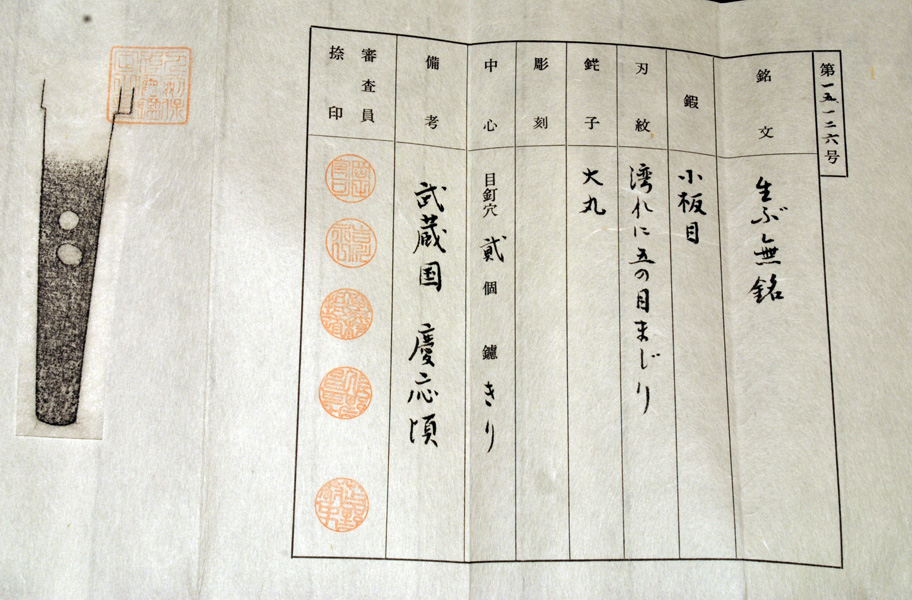 第一五一二六号
銘文
生ぶ無銘
鍜
小板目
刃紋
湾れに五の目まじり
鋩子
大丸
彫刻
中心
目釘穴 貳 個 鑢 きり
備考
武蔵国 慶応頃
審査員
捺印